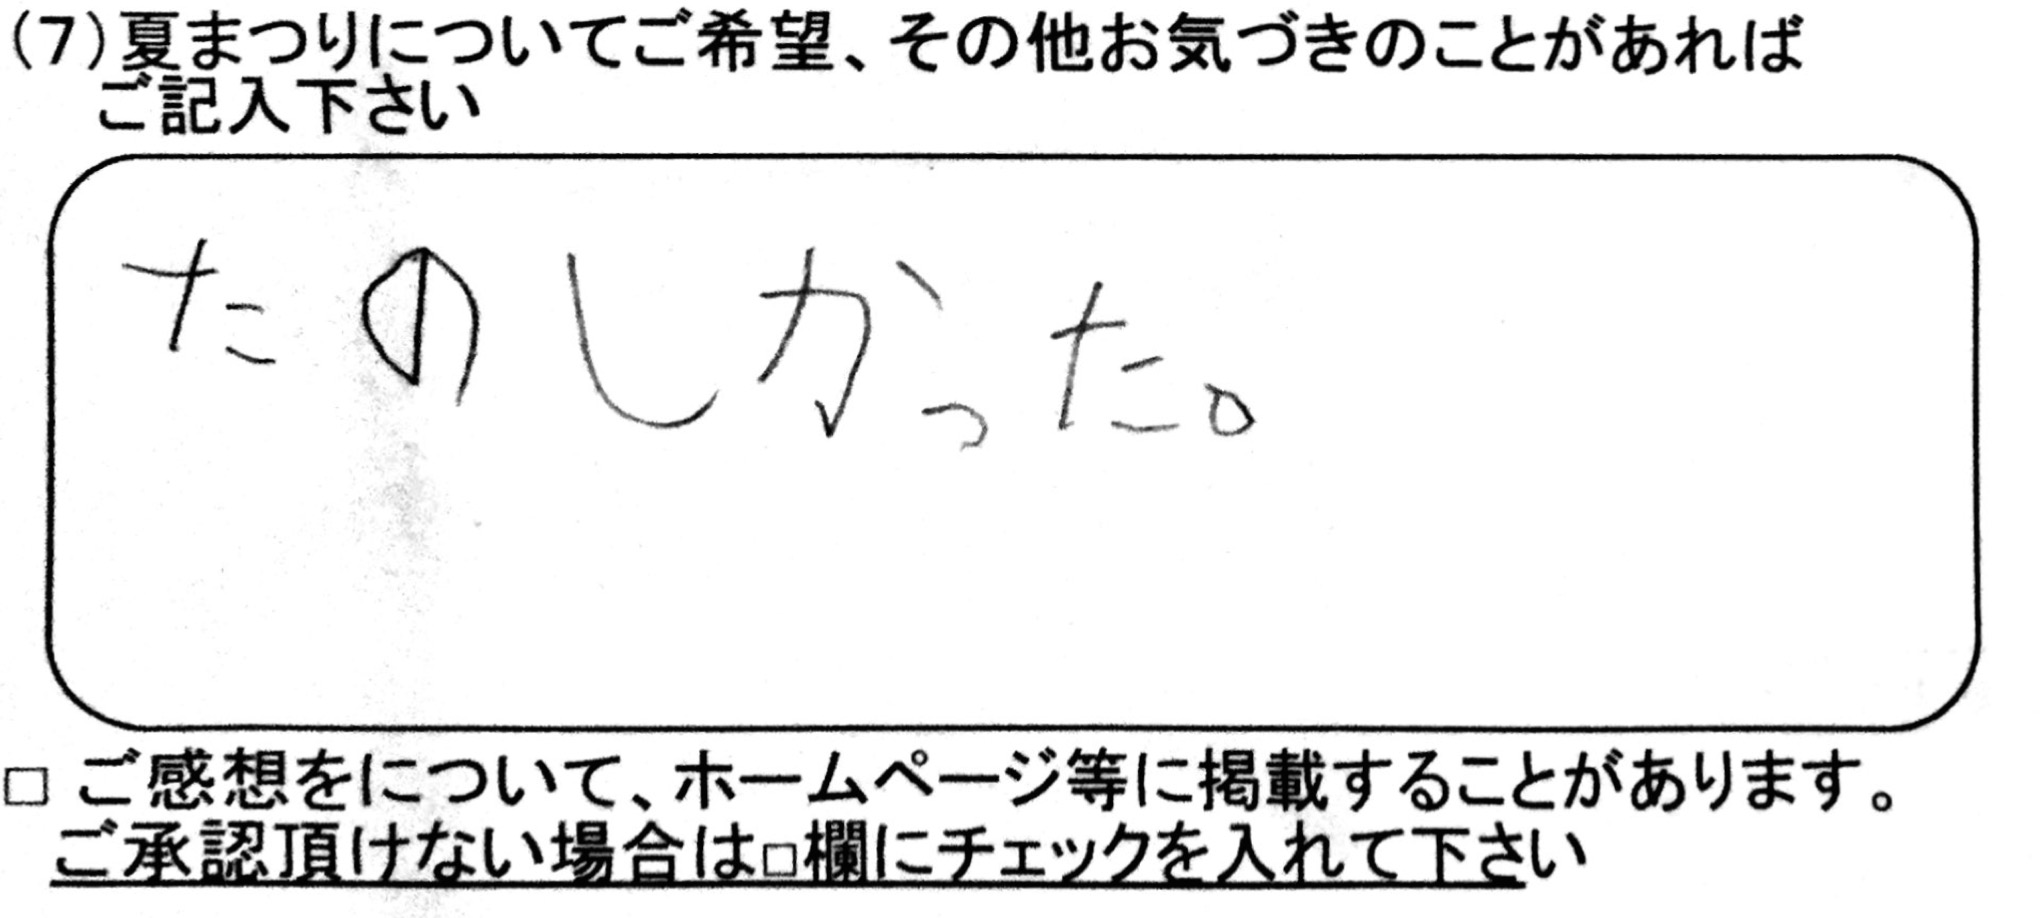 (7)夏まつりについてご希望、その他お気づきのことがあれば
ご記入下さい
たのしかった。
□ ご感想をについて、ホームページ等に掲載することがあります。
ご承認頂けない場合は□欄にチェックを入れて下さい